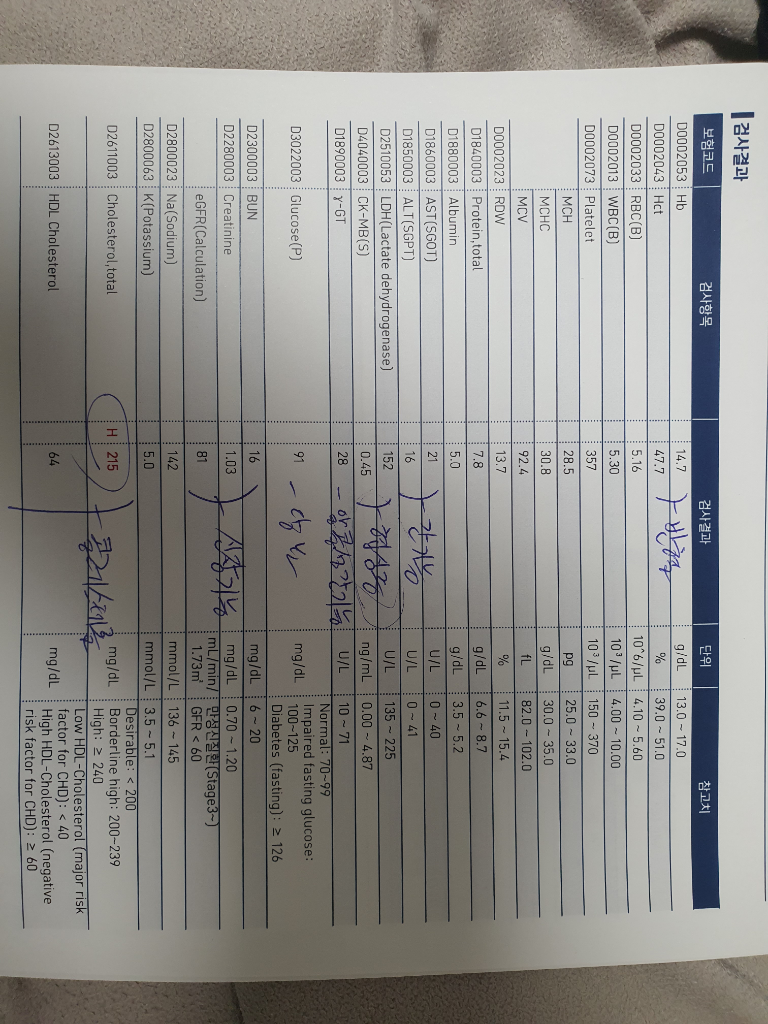 검사결과
보험코드 검사항목 검사결과 단위 참고치
D0002053 Hb 14.7 g/dL 13.0 ~ 17.0
D0002043 Hct 47.7 % 39.0 ~ 51.0
) - 빈혈
D0002033 RBC(B) 5.16 10^6/μL 4.10 ~ 5.60
D0002013 WBC(B) 5.30 10³/μL 4.00 ~ 10.00
D0002073 Platelet 357 10³/μL 150 ~ 370
MCH 28.5 pg 25.0 ~ 33.0
MCHC 30.8 g/dL 30.0 ~ 35.0
MCV 92.4 fL 82.0 ~ 102.0
D0002023 RDW 13.7 % 11.5 ~ 15.4
D1840003 Protein,total 7.8 g/dL 6.6 ~ 8.7
D1880003 Albumin 5.0 g/dL 3.5 ~ 5.2
D1860003 AST(SGOT) 21 U/L 0 ~ 40
) - 간기능
D1850003 ALT(SGPT) 16 U/L 0 ~ 41
D2510053 LDH(Lactate dehydrogenase) 152 U/L 135 ~ 225
D4040053 CK-MB(S) 0.45 ng/mL 0.00 ~ 4.87
D1890003 γ-GT 28 - 알콜성간기능 U/L 10 ~ 71
D3022003 Glucose(P) 91 - 당뇨 mg/dL Normal: 70~99
Impaired fasting glucose:
100~125
Diabetes (fasting): ≥ 126
D2300003 BUN 16 mg/dL 6 ~ 20
D2280003 Creatinine 1.03 mg/dL 0.70 ~ 1.20
) - 신장기능
eGFR(Calculation) 81 mL/min/1.73㎡ 만성신질환(Stage3~)
GFR < 60
D2800023 Na(Sodium) 142 mmol/L 136 ~ 145
D2800063 K(Potassium) 5.0 mmol/L 3.5 ~ 5.1
D2611003 Cholesterol,total H 215 mg/dL Desirable: < 200
Borderline high: 200~239
High: ≥ 240
) - 콜레스테롤
D2613003 HDL Cholesterol 64 mg/dL Low HDL-Cholesterol (major risk
factor for CHD): < 40
High HDL-Cholesterol (negative
risk factor for CHD): ≥ 60